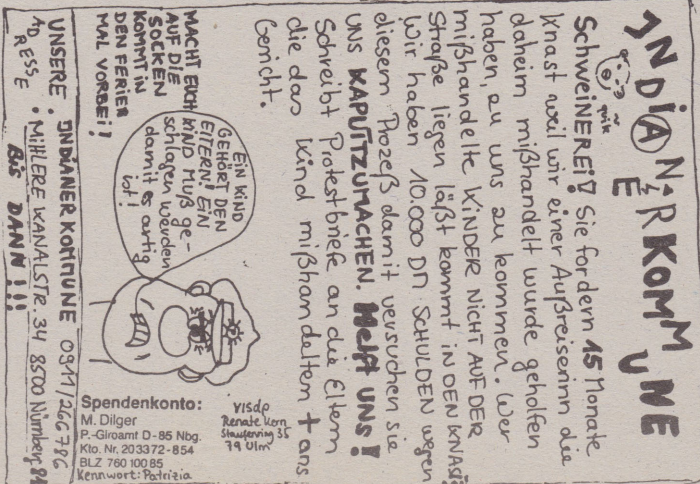 INDIANERKOMMUNE
quik
SchweiNEREi! Sie fordern 15 Monate
Knast weil wir einer Außreiserinn die
daheim mißhandelt wurde geholfen
haben, zu uns zu kommen. Wer
mißhandelte KINDER NICHT AUF DER
Straße liegen läßt kommt IN DEN KNAST!
Wir haben 10.000 DM SCHULDEN wegen
diesem Prozeß damit versuchen sie
UNS KAPUTTZUMACHEN. Helft UNS!
Schreibt Protestbriefe an die Eltern
die das Kind mißhandelten + ans
Gericht.
MACHT EUCH
AUF DIE
SOCKEN
KOMMT IN
DEN FERIEN
MAL VORBEI!
EIN KIND
GEHÖRT DEN
ELTERN! EIN
KIND MUß ge-
schlagen werden
damit es artig
ist!
VISdP
Renate Kern
Staufenring 35
79 Ulm
Spendenkonto:
M. Dilger
P.-Giroamt D-85 Nbg.
Kto. Nr. 203372-854
BLZ 760 100 85
Kennwort: Patrizia
UNSERE INDIANERKOMMUNE 0911/266786
ADRESSE: MIHLERE KANALSTR. 34 8500 Nürnberg 81
BIS DANN!!!